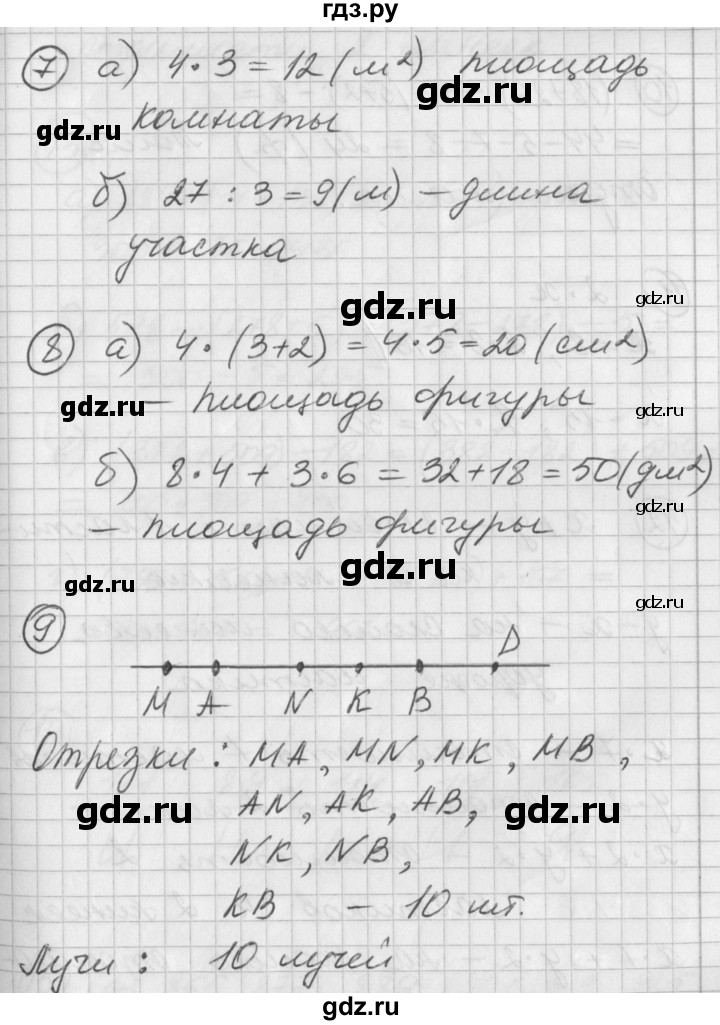 гдз.ру
7 а) 4·3=12(м²) площадь
gdz.ru
gdz.ru комнаты
б) 27:3=9(м) – длина
участка
gdz.ru gdz.ru
8 а) 4·(3+2)=4·5=20(см²)
gdz.ru – площадь фигуры gdz.ru
б) 8·4+3·6=32+18=50(дм²)
gdz.ru
– площадь фигуры
gdz.ru gdz.ru
gdz.ru
9
D
M A N K B
Отрезки: MA, MN, MK, MB,
gdz.ru AN, AK, AB, gdz.ru
NK, NB,
KB – 10 шт.
Лучи: 10 лучей
gdz.ru